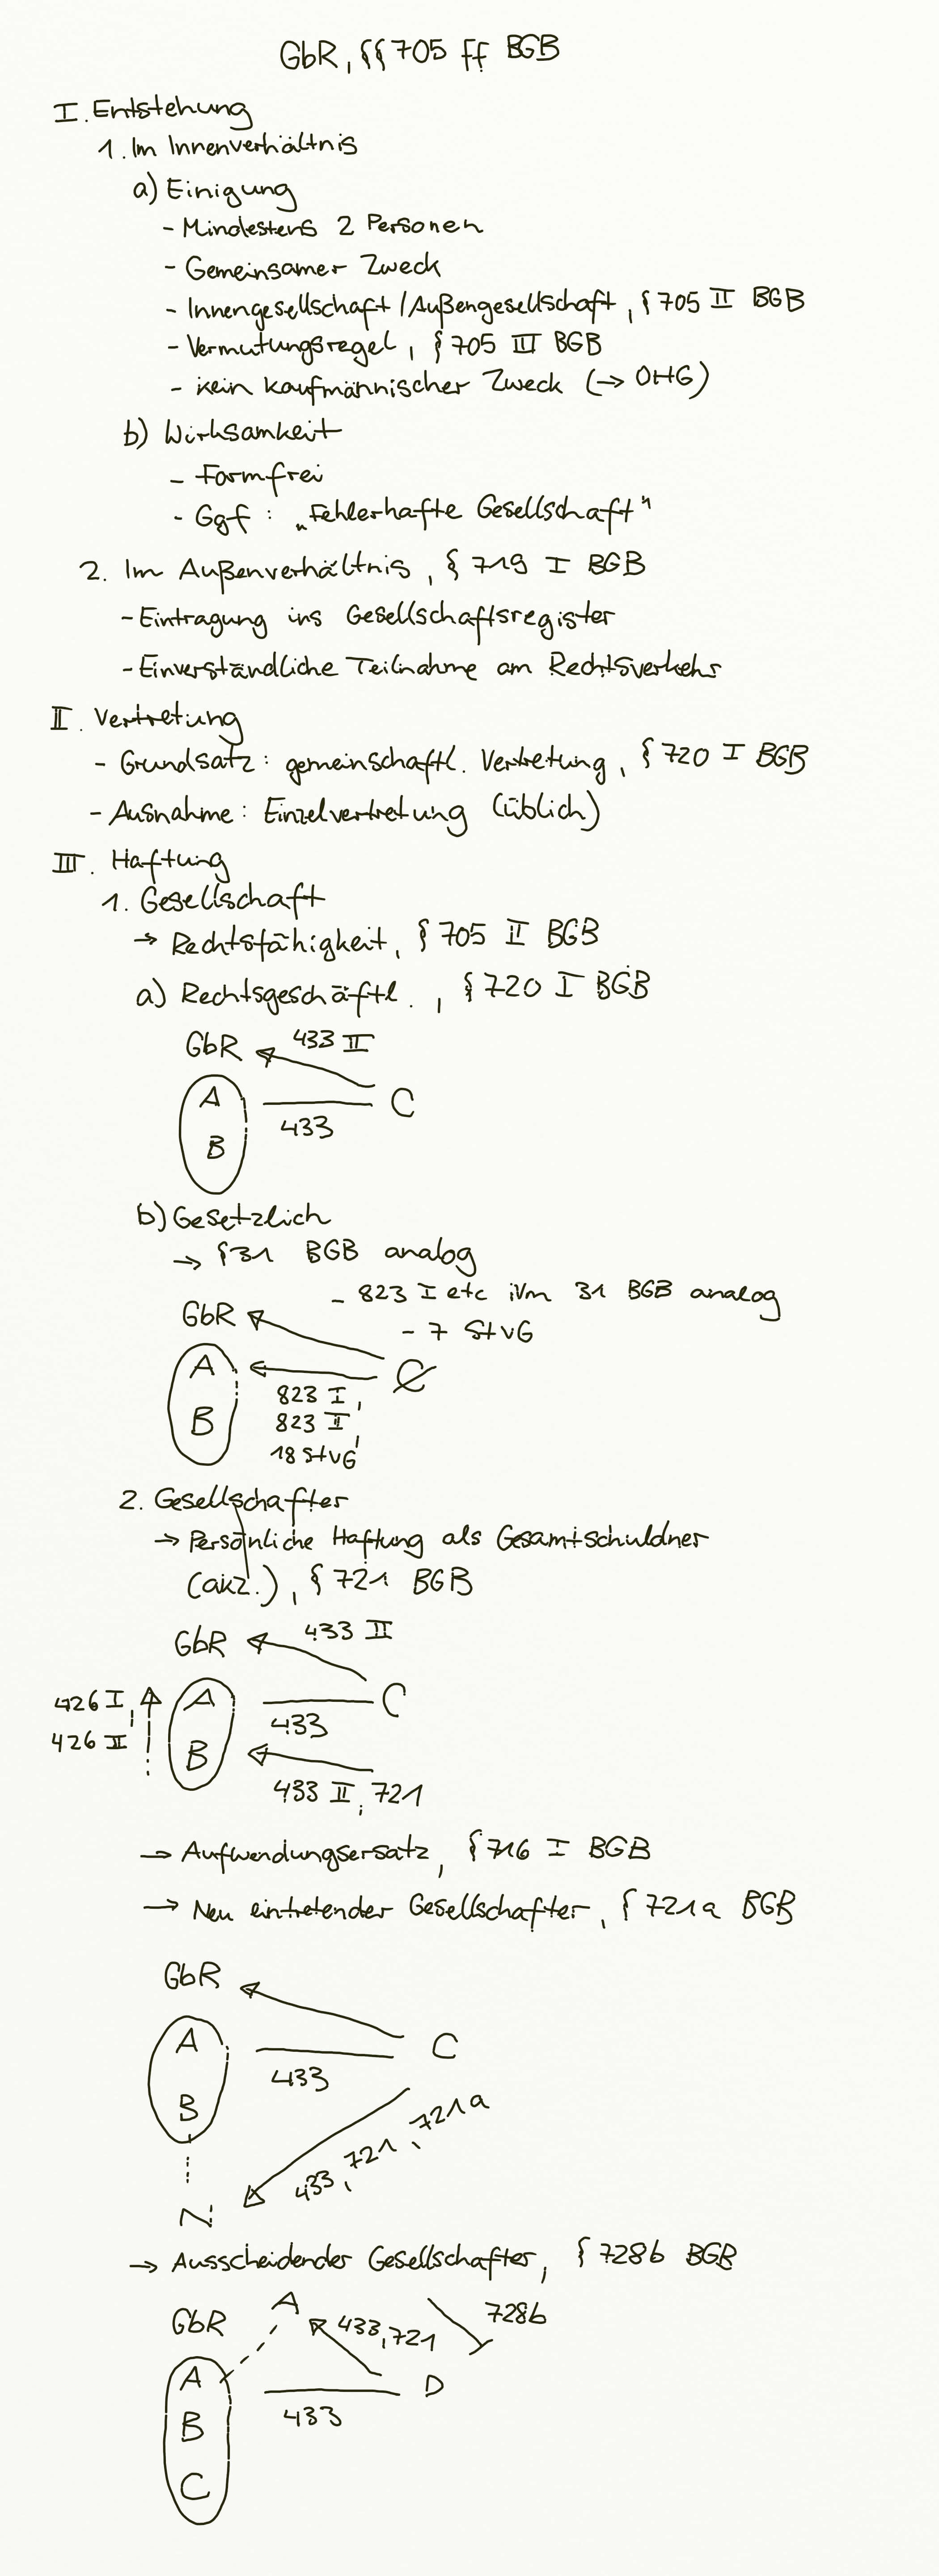 GbR, §§ 705 ff BGB
I. Entstehung
1. Im Innenverhältnis
a) Einigung
- Mindestens 2 Personen
- Gemeinsamer Zweck
- Innengesellschaft / Außengesellschaft, § 705 II BGB
- Vermutungsregel, § 705 III BGB
- kein kaufmännischer Zweck (→ OHG)
b) Wirksamkeit
- Formfrei
- Ggf: „Fehlerhafte Gesellschaft"
2. Im Außenverhältnis, § 719 I BGB
- Eintragung ins Gesellschaftsregister
- Einverständliche Teilnahme am Rechtsverkehr
II. Vertretung
- Grundsatz: gemeinschaftl. Vertretung, § 720 I BGB
- Ausnahme: Einzelvertretung (üblich)
III. Haftung
1. Gesellschaft
→ Rechtsfähigkeit, § 705 II BGB
a) Rechtsgeschäftl., § 720 I BGB
GbR 433 II
A
433 C
B
b) Gesetzlich
→ § 31 BGB analog
- 823 I etc iVm 31 BGB analog
GbR
- 7 StVG
A C
823 I,
B 823 II,
18 StVG
2. Gesellschafter
→ Persönliche Haftung als Gesamtschuldner
(akz.), § 721 BGB
GbR 433 II
426 I, A C
433
426 II B
433 II, 721
→ Aufwendungsersatz, § 716 I BGB
→ Neu eintretender Gesellschafter, § 721a BGB
GbR
A C
433
B
433, 721, 721a
N
→ Ausscheidender Gesellschafter, § 728b BGB
A 728b
GbR 433, 721
A D
433
B
C